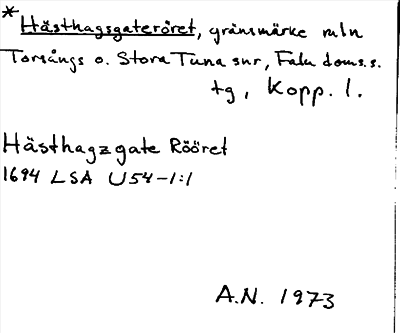 * Hästhagsgateröret, gränsmärke mln
Torsångs o. Stora Tuna snr, Falu doms.s.
tg, Kopp. l.
Hästhagzgate Rööret
1694 LSA U54-1:1
A.N. 1973